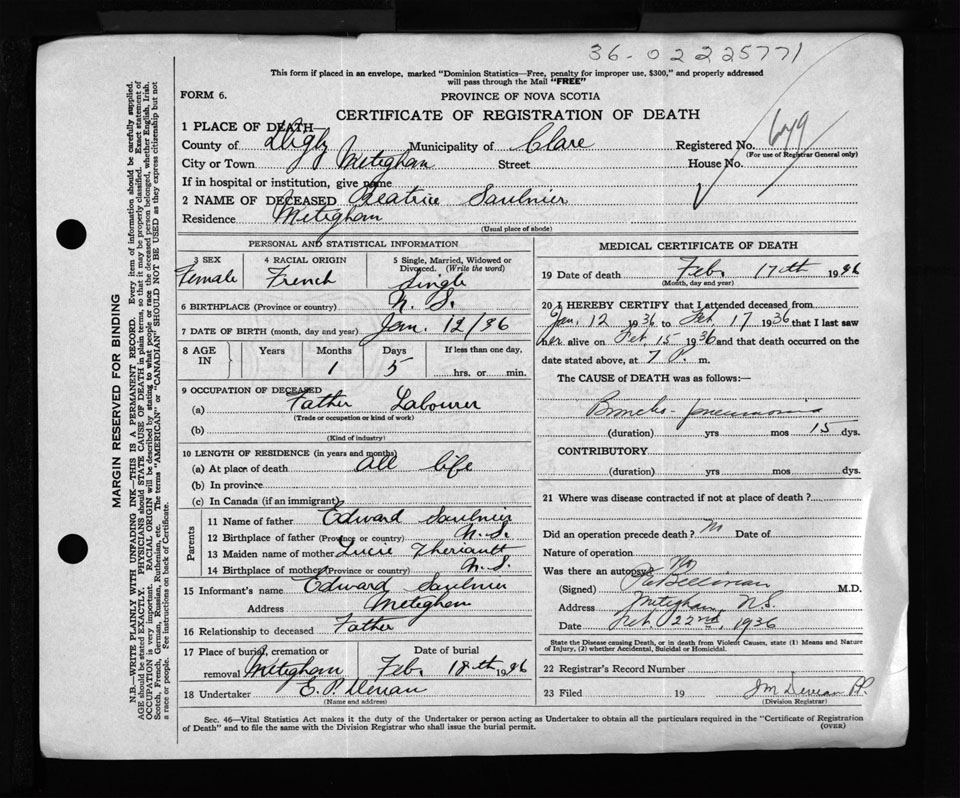 36-02225771
This form if placed in an envelope, marked "Dominion Statistics—Free, penalty for improper use, $300," and properly addressed
will pass through the Mail "FREE"
FORM 6.
PROVINCE OF NOVA SCOTIA
CERTIFICATE OF REGISTRATION OF DEATH
1 PLACE OF DEATH—
County of Digby Municipality of Clare Registered No. 649
(For use of Registrar General only)
City or Town Meteghan Street House No.
If in hospital or institution, give name
2 NAME OF DECEASED Beatrice Saulnier
Residence Meteghan
(Usual place of abode)
PERSONAL AND STATISTICAL INFORMATION
3 SEX
Female
4 RACIAL ORIGIN
French
5 Single, Married, Widowed or
Divorced. (Write the word)
Single
6 BIRTHPLACE (Province or country) N. S.
7 DATE OF BIRTH (month, day and year) Jan. 12/36
8 AGE IN Years Months Days If less than one day,
1 5 hrs. or min.
9 OCCUPATION OF DECEASED
(a) Father Labourer
(Trade or occupation or kind of work)
(b)
(Kind of industry)
10 LENGTH OF RESIDENCE (in years and months)
(a) At place of death all life
(b) In province
(c) In Canada (if an immigrant)
Parents
11 Name of father Edward Saulnier
12 Birthplace of father (Province or country) N. S.
13 Maiden name of mother Lucie Theriault
14 Birthplace of mother (Province or country) N. S.
15 Informant's name Edward Saulnier
Address Meteghan
16 Relationship to deceased Father
17 Place of burial, cremation or removal Meteghan
Date of burial
Feb. 18th 1936
18 Undertaker E. P.
(Name and address)
MEDICAL CERTIFICATE OF DEATH
19 Date of death Feb. 17th 1936
(Month, day and year)
20 I HEREBY CERTIFY that I attended deceased from
Jan. 12 1936 to Feb. 17 1936 that I last saw
her alive on Feb. 15 1936 and that death occurred on the
date stated above, at 7 m.
The CAUSE OF DEATH was as follows:—
Broncho-pneumonia
(duration) yrs mos 15 dys.
CONTRIBUTORY
(duration) yrs mos dys.
21 Where was disease contracted if not at place of death?
Did an operation precede death? No Date of
Nature of operation
Was there an autopsy? No
(Signed) M.D.
Address Meteghan, N.S.
Date Feb. 22nd, 1936
State the Disease causing Death, or in death from Violent Causes, state (1) Means and Nature
of Injury, (2) whether Accidental, Suicidal or Homicidal.
22 Registrar's Record Number
23 Filed 19
(Division Registrar)
Sec. 46—Vital Statistics Act makes it the duty of the Undertaker or person acting as Undertaker to obtain all the particulars required in the "Certificate of Registration
of Death" and to file the same with the Division Registrar who shall issue the burial permit.
(OVER)
MARGIN RESERVED FOR BINDING
N.B.—WRITE PLAINLY WITH UNFADING INK—THIS IS A PERMANENT RECORD. Every item of information should be carefully supplied.
AGE should be stated EXACTLY. PHYSICIANS should STATE CAUSE OF DEATH in plain terms, so that it may be properly classified. Exact statement of
OCCUPATION is very important. RACIAL ORIGIN will be described by stating to what people or race the deceased person belonged, whether English, Irish,
Scotch, French, German, Russian, Ruthenian, etc. The terms "AMERICAN" or "CANADIAN" SHOULD NOT BE USED as they express citizenship but not
a race or people. See instructions on back of Certificate.